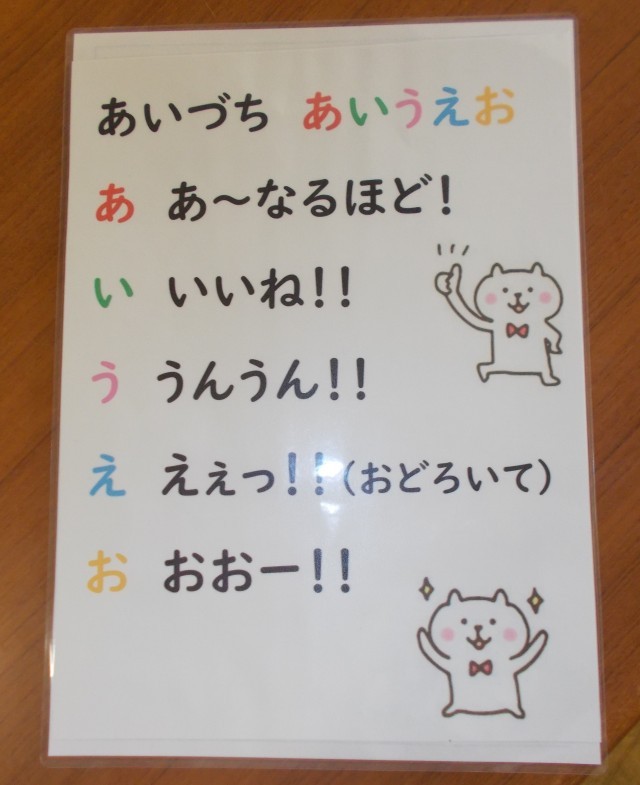 あいづち あいうえお
あ あ～なるほど！
い いいね！！
う うんうん！！
え えぇっ！！（おどろいて）
お おおー！！